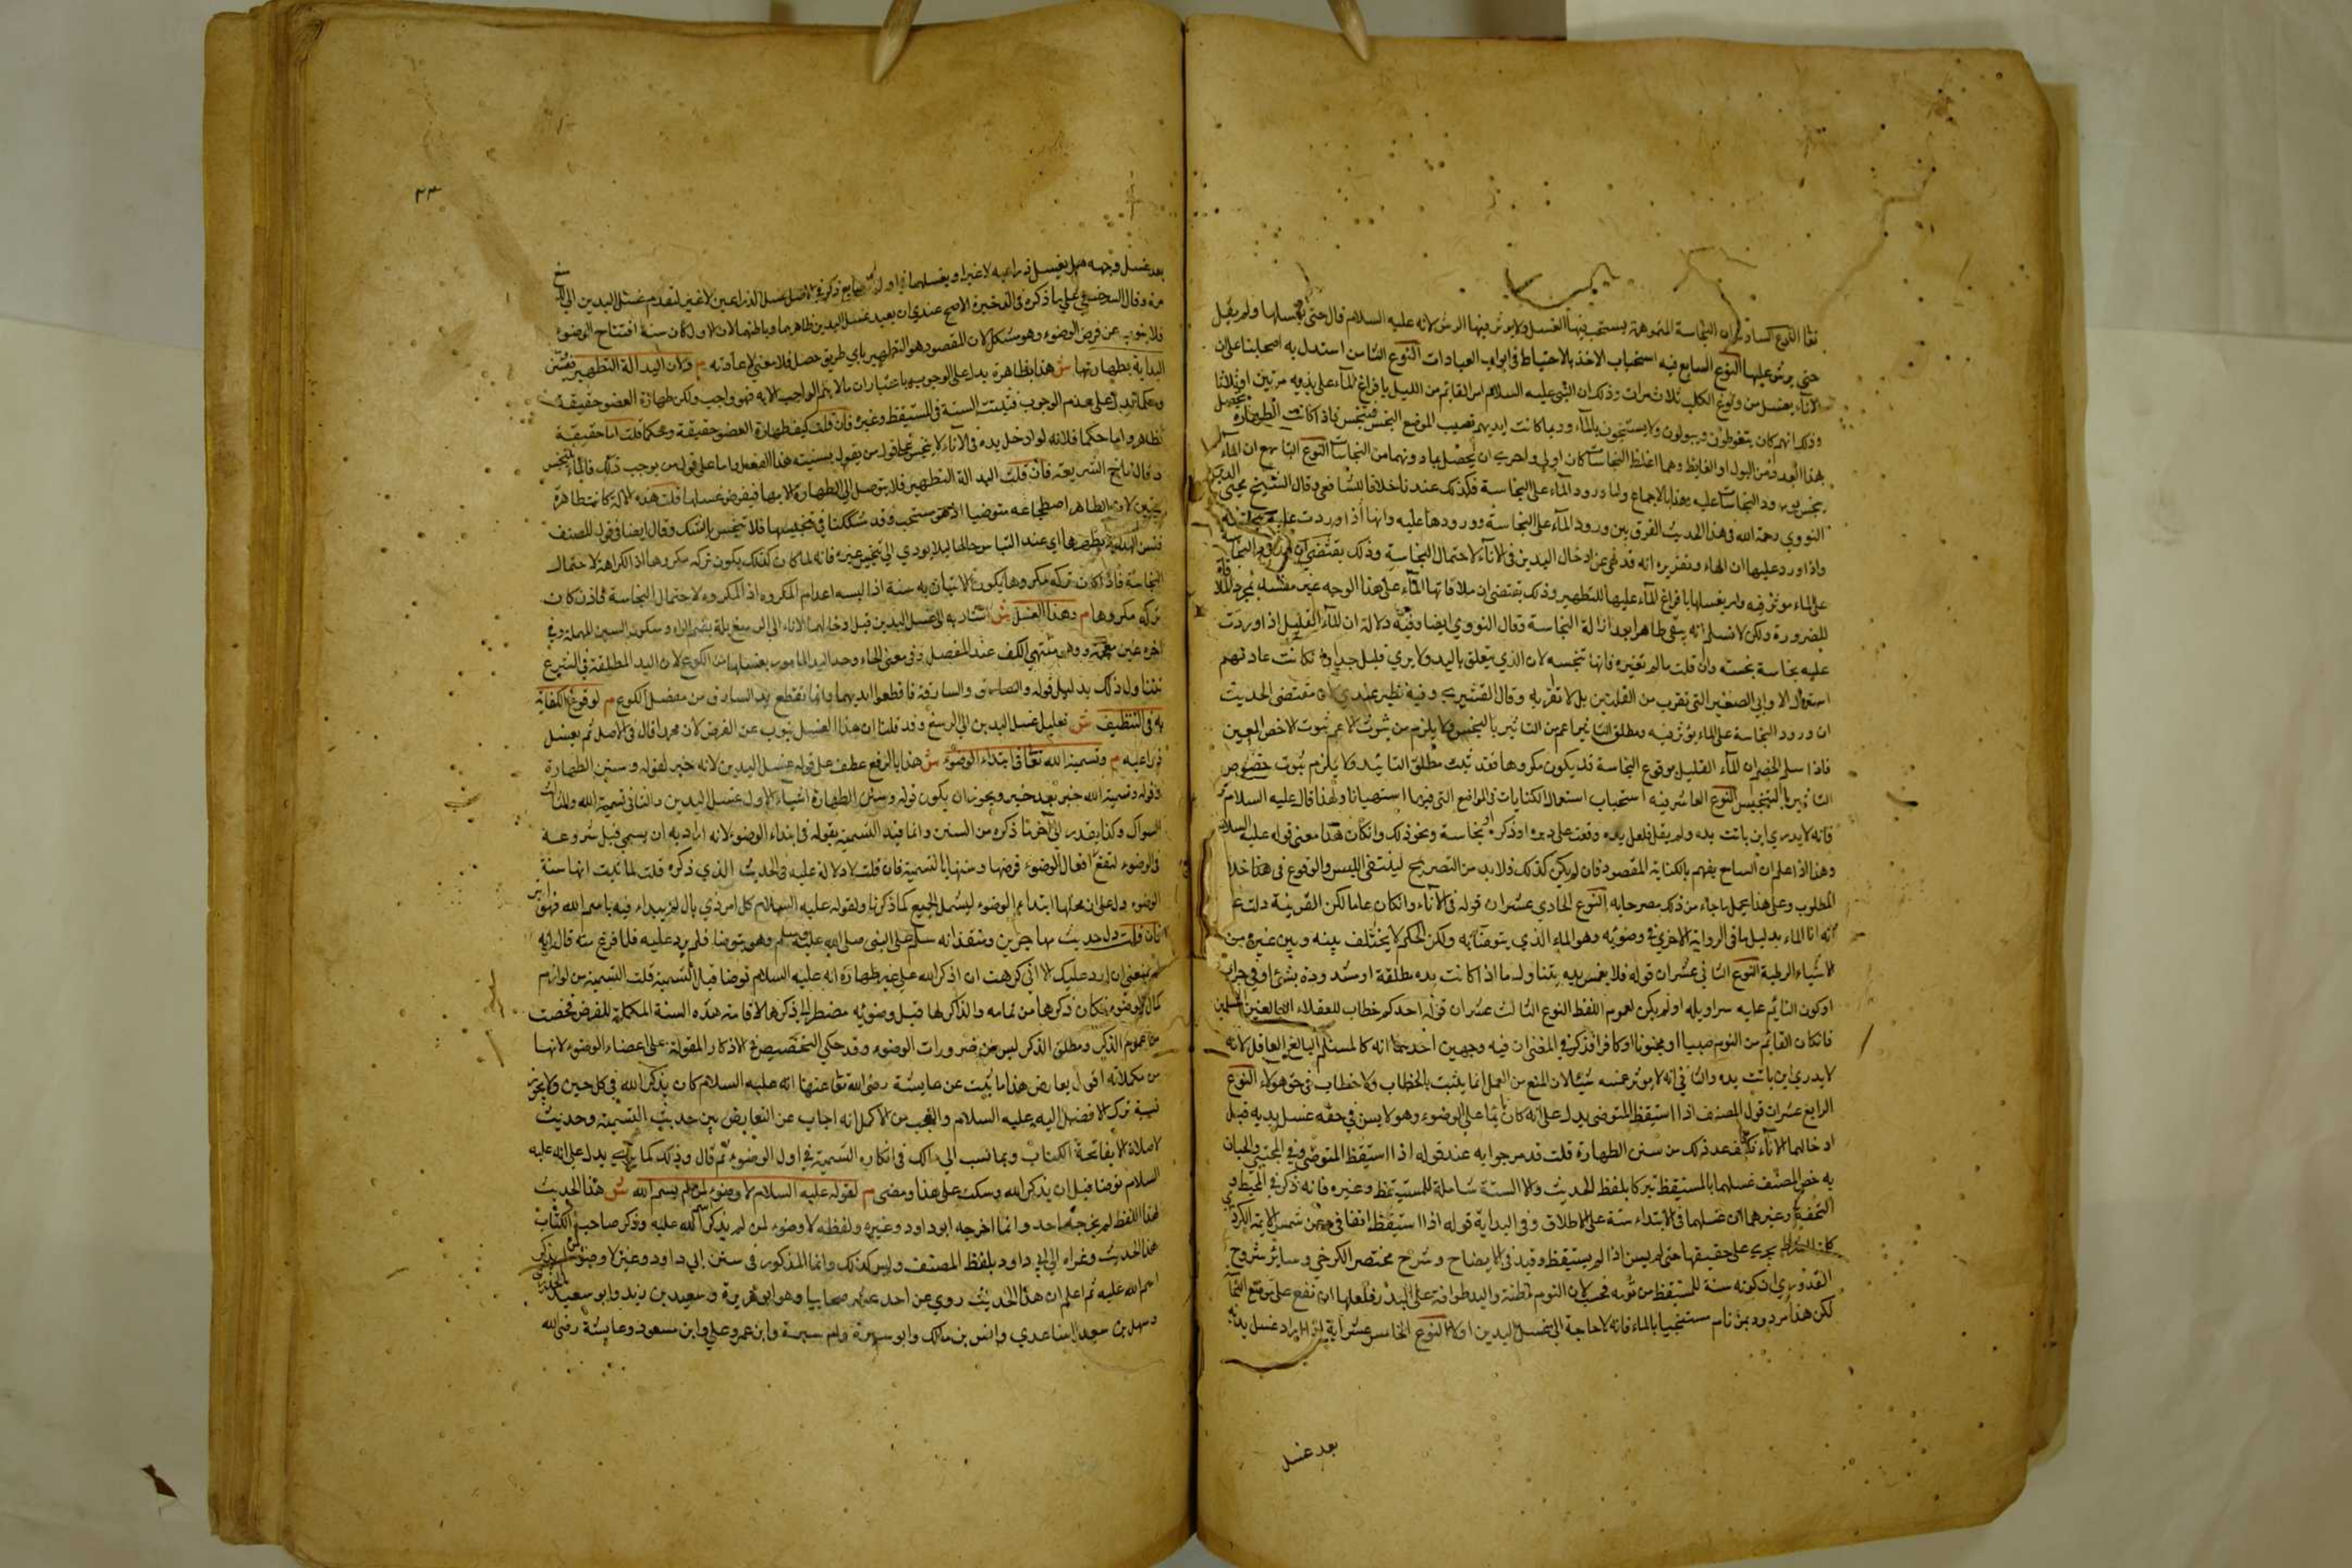 تعالى النوع السادس ان النجاسة المتوهمة يستحب فيها الغسل ولا يؤثر فيها الرش لانه عليه السلام قال حتى يغسلها ولم يقل
حتى يرش عليها النوع السابع فيه استحباب الاخذ بالاحتياط في ابواب العبادات النوع الثامن استدل به اصحابنا على ان
الاناء يغسل من ولوغ الكلب ثلاث مرات وذلك ان النبي عليه السلام امر القائم من الليل بافراغ الماء على يديه مرتين او ثلاثا
وذلك انهم كان يتغوطون ويبولون ولا يستنجون بالماء وربما كانت ايديهم تصيب الموضع النجس فتنجس فاذا كانت الطهارة تحصل
بهذا العدد من البول او الغايط وهما اغلظ النجاسات كان اولى واحرى ان تحصل مما دونهما من النجاسات النوع التاسع ان الماء
ينجس بورود النجاسات عليه وهذا بالاجماع واما ورود الماء على النجاسة فكذلك عندنا خلافا للشافعي وقال الشيخ محيي الدين
النووي رحمة الله في هذا الحديث الفرق بين ورود الماء على النجاسة وورودها عليه وانها اذا وردت عليه نجسته
واذا ورد عليها ازالها وتقريره انه قد نهى عن ادخال اليدين في الاناء لاحتمال النجاسة وذلك يقتضي ان ورود النجاسة
على الماء مؤثر فيه وامر بغسلها بافراغ الماء عليها للتطهير وذلك يقتضي ان ملاقاتها الماء على هذا الوجه غير مفسد بمجرد الملاقاة
للضرورة ولكن لا نسلم انه يبقى طاهرا بعد ازالة النجاسة وقال النووي ايضا وفيه دلالة ان الماء القليل اذا وردت
عليه نجاسة نجسته وان قلت مالم تغيره فانها تنجسه لان الذي يتعلق باليد ولا يرى قليل جدا وكانت عادتهم
استعمال الاواني الصغيرة التي تقرب من القلتين بل لا تقاربه وقال القشيري وفيه نظر عندي لان مقتضى الحديث
ان ورود النجاسة على الماء يؤثر فيه ومطلق التاثير اعم من التاثير بالتنجيس ولا يلزم من ثبوت الاعم ثبوت الاخص المعين
فاذا سلم الخصم ان الماء القليل بوقوع النجاسة قد يكون مكروها فقد ثبت مطلق التاثير ولا يلزم ثبوت خصوص
التاثير بالتنجيس النوع العاشر فيه استحباب استعمال الكنايات في المواضع التي فيها استهجان ولهذا قال عليه السلام
فانه لا يدري اين باتت يده ولم يقل فلعل يده وقعت على دبره او ذكره او نجاسة ونحو ذلك وان كان هذا معنى قوله عليه السلام
وهذا اذا علم ان السامع يفهم بالكناية المقصود فان لم يكن كذلك فلا بد من التصريح لينتفي اللبس والوقوع في هذا خلاف
المطلوب وعلى هذا يحمل ما جاء من ذلك مصرحا به النوع الحادي عشر ان قوله في الاناء وان كان عاما لكن القرينة دلت على
انه اناء الماء بدليل ما في الرواية الاخرى في وضوئه وهو الماء الذي يتوضأ به ولكن الحكم لا يختلف بينه وبين غيره من
الاشياء الرطبة النوع الثاني عشر ان قوله فلا يغمس يده يتناول ما اذا كانت يده مطلقة او مشدودة بشئ او في جراب
او كون النايم عليه سراويله او لم يكن لعموم اللفظ النوع الثالث عشر ان قوله احدكم خطاب للعقلاء البالغين المسلمين
فان كان القائم من النوم صبيا او مجنونا او كافرا فذكر في المغني ان فيه وجهين احدهما انه كالمسلم البالغ العاقل لانه
لا يدري اين باتت يده والثاني انه لا يؤثر غمسه شيئا لان المنع من الغمس انما يثبت بالخطاب ولا خطاب في حق هولاء النوع
الرابع عشر ان قول المصنف اذا استيقظ المتوضي يدل على انه كان نايما على الوضوء وهو لا يسن في حقه غسل يديه قبل
ادخالهما الاناء فكيف عد ذلك من سنن الطهارة قلت قد مر جوابه عند قوله اذا استيقظ المتوضي وفي المجتبى والبيان
به خص المصنف غسلهما بالمستيقظ تبركا بلفظ الحديث والا السنة شاملة للمستيقظ وغيره فانه ذكر في المحيط و
التحفة وغيرهما ان غسلهما في الابتداء سنة على الاطلاق وفي البداية قوله اذا استيقظ اتفاقي وعن شمس الايمة الكردري
كان الشرط يجري على حقيقتها حتى لم يسن اذا لم يستيقظ وقيد في الايضاح وشرح مختصر الكرخي وساير شروح
القدوري ان كونه سنة للمستيقظ من نومه فحسب لان النوم مظنة واليد طوافة على البدن فلعلها ان تقع على موضع النجاسة
لكن هذا مردود بمن نام مستنجيا بالماء فانه لا حاجة الى غسل اليدين اولا النوع الخامس عشر انه اذا اراد غسل يديه
بعد غسل
٣٣
بعد غسل وجهه هل يغسل ذراعيه لا غير او يغسلهما
مرة وقال السرخسي على ما ذكره في الذخيرة الاصح عندي ان يعيد غسل اليدين ظاهرهما وباطنهما لان الاول كان سنة افتتاح الوضوء
فلا ينوب عن فرض الوضوء وهو مشكل لان المقصود هو التطهير باي طريق حصل فلا معنى لاعادته م ولان اليد الة التطهير فتسن
البداية بطهارتها ش هذا بظاهره يدل على الوجوب باعتبار ان ما لا يتم الواجب الا به فهو واجب ولكن طهارة العضو حقيقة
وحكما تدل على عدم الوجوب فثبتت السنة في المستيقظ وغيره فان قلت كيف طهارة العضو حقيقة وحكما قلت اما حقيقة
فظاهر واما حكما فلانه لو ادخل يده في الاناء لا يتنجس على قول من يقول بسنيته هذا الفعل واما على قول من يوجب ذلك فالماء يتنجس
وقال تاج الشريعة فان قلت اليد الة التطهير فلا يتوصل الى الطهارة الا بها فيفرض غسلها قلت هذه الالة كانت طاهرة
بيقين لان الظاهر اضطجاعه متوضيا اذ هو مستحب وقد شككنا في تنجيسها فلا تتنجس بالشك وقال ايضا في قول المصنف
فتسن البداية بتطهيرها اي عند التباس حالها ليلا يودي الى تنجيس غيره فانه لما كان كذلك يكون تركه مكروها اذ الكراهة لاحتمال
النجاسة فاذا كان تركه مكروها يكون الاتيان به سنة اذ السنة اعدام المكروه اذ المكروه لاحتمال النجاسة فاذن كان
تركه مكروها م وهذا الغسل ش اشار به الى غسل اليدين قبل ادخالهما الاناء الى الرسغ بضم الراء وسكون السين المهملة وفي
اخره غين معجمة وهو منتهى الكف عند المفصل وفي معنى الحاء وحد اليد المامور بغسلها من الكوع لان اليد المطلقة في الشرع
تتناول ذلك بدليل قوله والسارق والسارقة فاقطعوا ايديهما وانما تقطع يد السارق من مفصل الكوع م لوقوع الكفاية
به في التنظيف ش تعليل غسل اليدين الى الرسغ وقد قلنا ان هذا الغسل ينوب عن الفرض لان محمدا قال في الاصل ثم يغسل
ذراعيه م وتسمية الله تعالى في ابتداء الوضوء ش هذا بالرفع عطف على قوله غسل اليدين لانه خبر لقوله وسنن الطهارة
وقوله وتسمية الله خبر بعد خبر ويجوز ان يكون قوله وسنن الطهارة اشياء الاول غسل اليدين والثاني تسمية الله والثالث
السواك وكذا يقدر الى اخر ما ذكره من السنن وانما قيد التسمية بقوله في ابتداء الوضوء لانه اراد به ان يسمي قبل شروعه
في الوضوء لتقع افعال الوضوء فرضها وسننها بالتسمية فان قلت لا دلالة عليه في الحديث الذي ذكره قلت لما ثبت انها سنة
الوضوء دل على ان محلها ابتداء الوضوء ليشمل الجميع كما ذكرنا ولقوله عليه السلام كل امر ذي بال لم يبداء فيه باسم الله فهو ابتر
فان قلت دل حديث مهاجر بن منقذ انه سلم على النبي صلى الله عليه وسلم وهو يتوضا فلم يرد عليه فلما فرغ منه قال انه
لم يمنعني ان ارد عليك الا اني كرهت ان اذكر الله على غير طهارة انه عليه السلام توضا قبل التسمية قلت التسمية من لوازم
كمال الوضوء فكان ذكرها من تمامه والذاكر لها قبل وضوئه مضطر الى ذكرها لاقامة هذه السنة المكملة للفرض فخصت
من عموم الذكر ومطلق الذكر ليس من ضرورات الوضوء وقد حكي التخصيص في الاذكار المقولة على اعضاء الوضوء لانها
من مكملاته اقول يعارض هذا ما ثبت عن عايشة رضى الله تعالى عنها انه عليه السلام كان يذكر الله في كل حين ولا يجوز
نسبة ترك الافضل اليه عليه السلام والعجب من الاكمل انه اجاب عن التعارض بين حديث التسمية وحديث
لا صلاة الا بفاتحة الكتاب وبما نسب الى مالك في انكاره التسمية في اول الوضوء ثم قال وذلك كما ترى يدل على انه عليه
السلام توضا قبل ان يذكر الله وسكت على هذا ومضى م لقوله عليه السلام لا وضوء لمن لم يسم الله ش هذا الحديث
بهذا اللفظ لم يخرجه احد وانما اخرجه ابو داود وغيره ولفظه لا وضوء لمن لم يذكر اسم الله عليه وذكر صاحب الكتاب
هذا الحديث وعزاه الى ابي داود بلفظ المصنف وليس كذلك وانما المذكور في سنن ابي داود وغيره لا وضوء لمن لم يذكر
اسم الله عليه ثم اعلم ان هذا الحديث روي عن احد عشر صحابيا وهو ابو هريرة وسعيد بن زيد وابو سعيد الخدري
وسهل بن سعد الساعدي وانس بن مالك وابو سبرة وام سبرة وابن عمر وعلي وابن مسعود وعايشة رضى الله